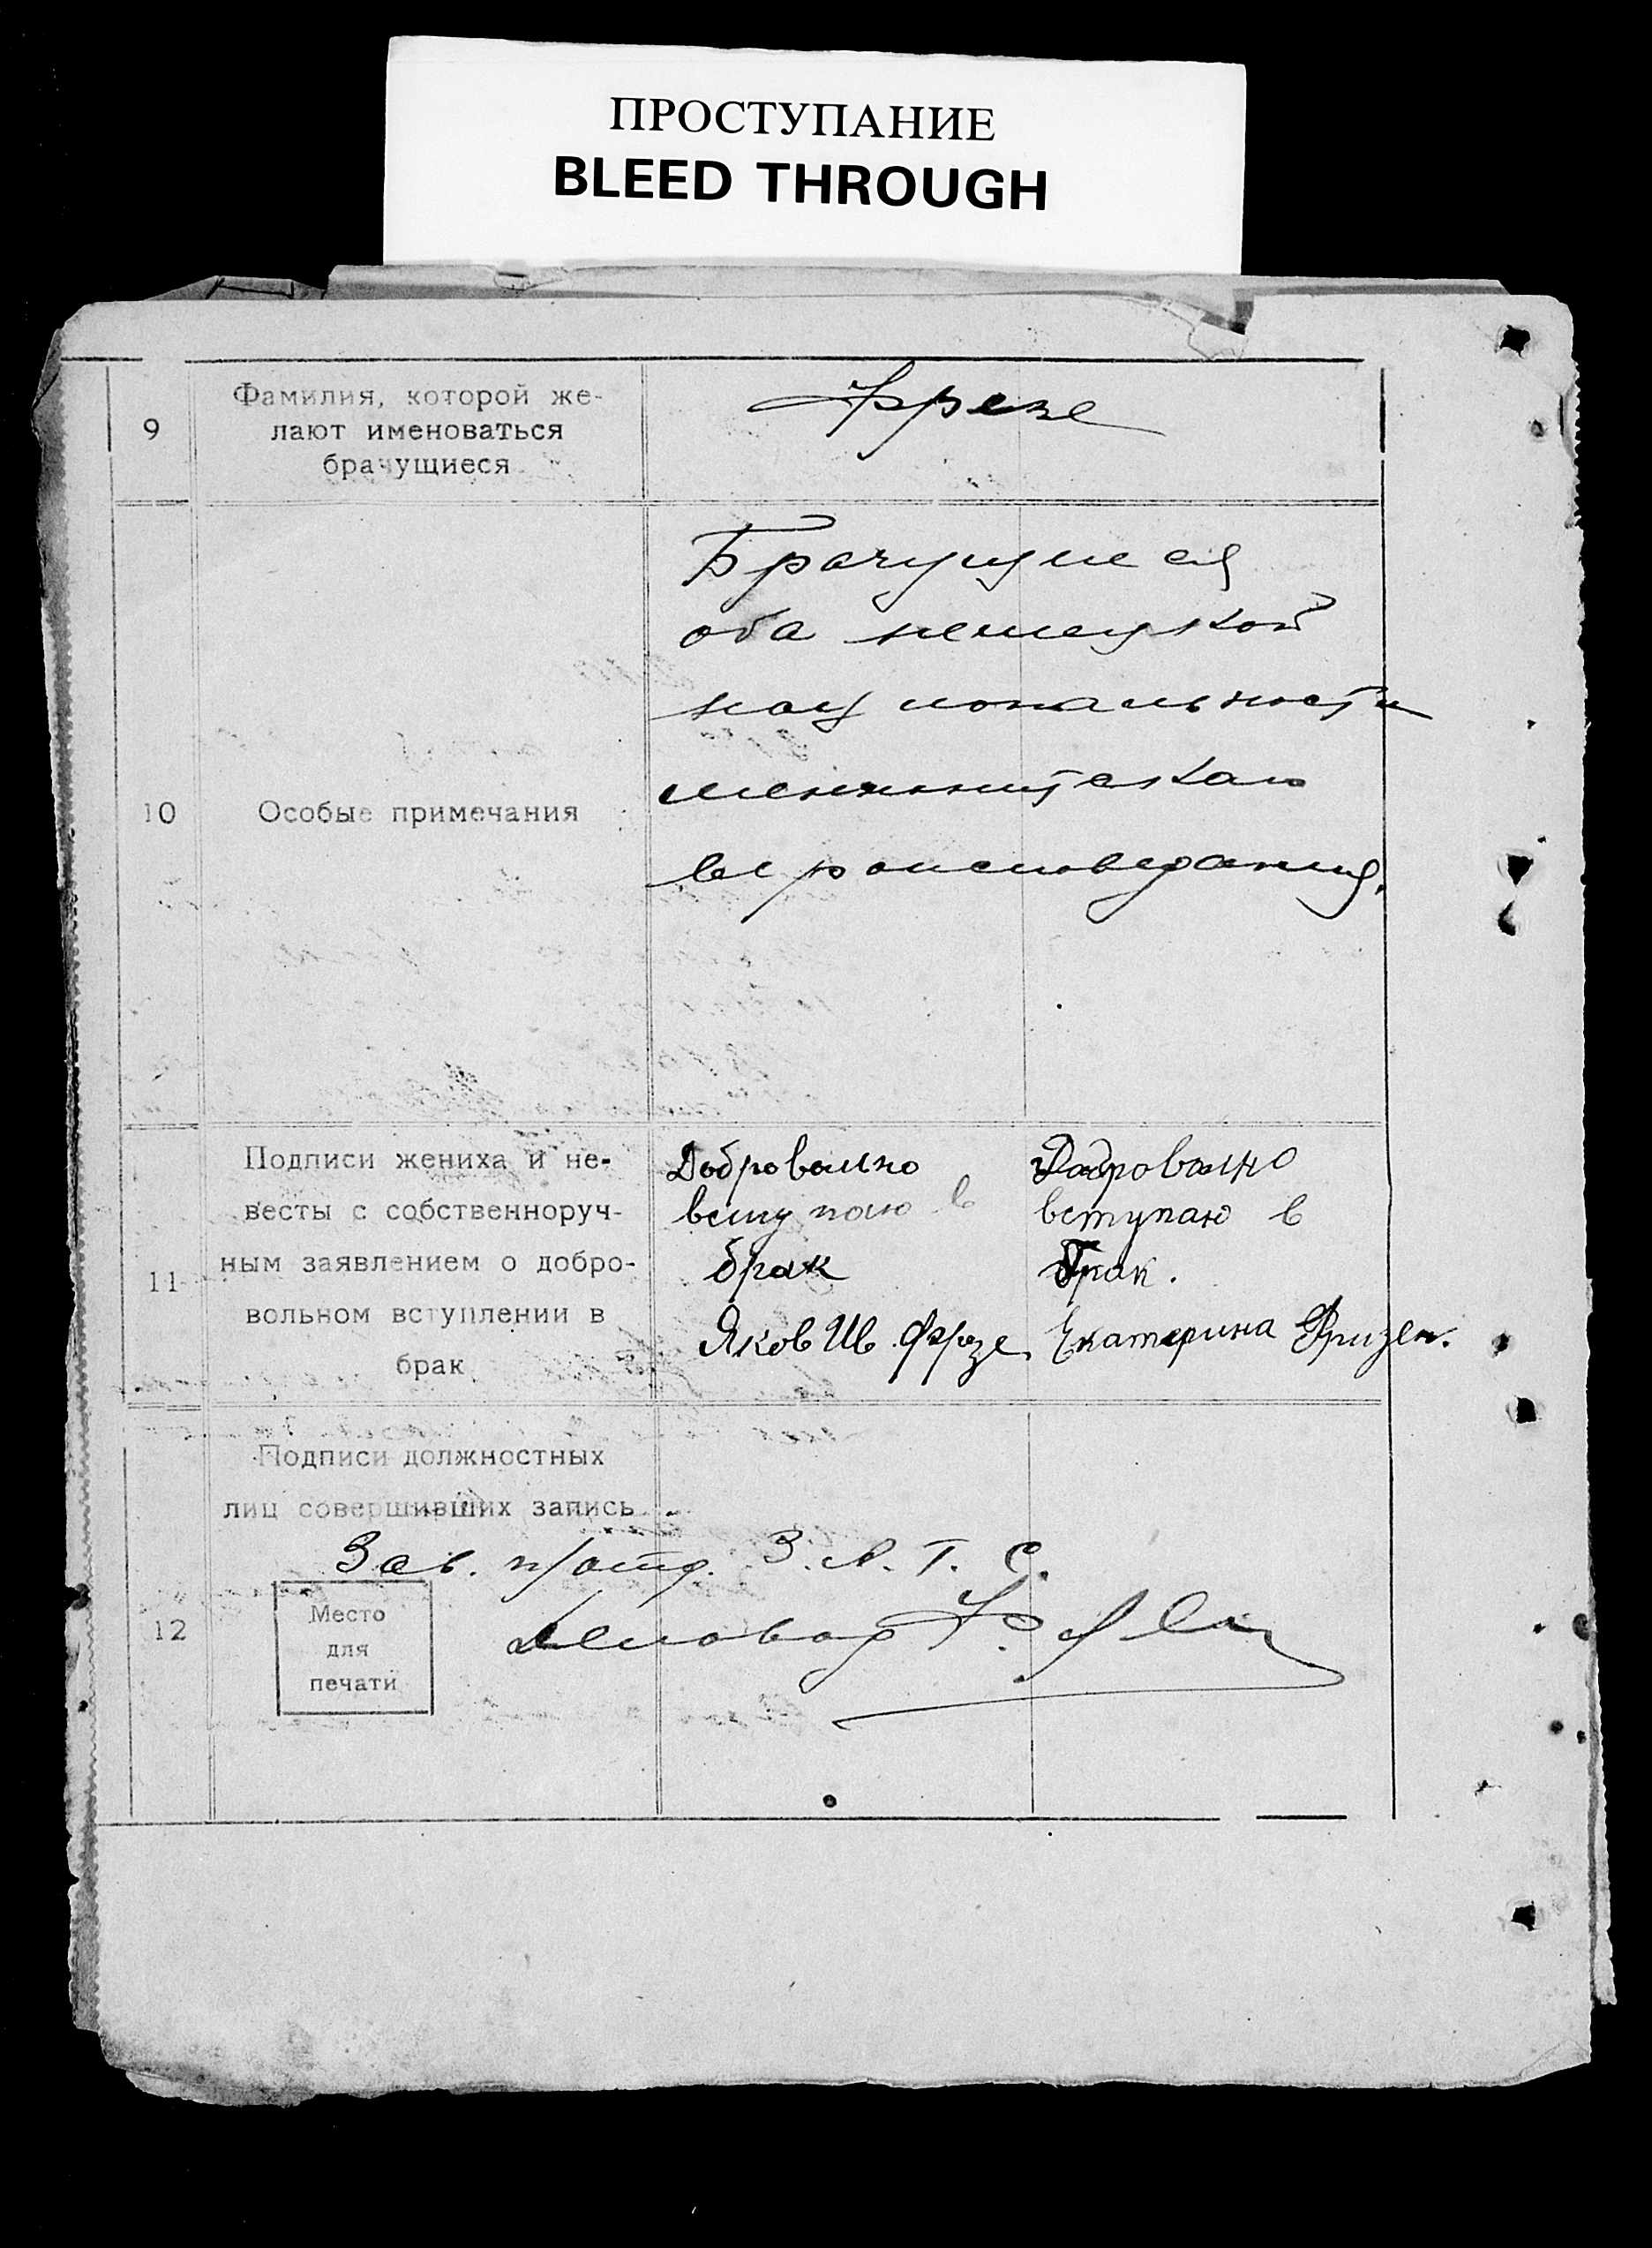 ПРОСТУПАНИЕ
BLEED THROUGH
9
Фамилия, которой же-
лают именоваться
брачущиеся
Фрезе
10
Особые примечания
Брачущиеся
оба немецкой
национальности
менонитскаго
вероисповедания.
11
Подписи жениха и не-
весты с собственноруч-
ным заявлением о добро-
вольном вступлении в
брак
Доброволно
вступаю в
брак
Яков Ив. Фрезе
Доброволно
вступаю в
брак.
Екатерина Фризен.
12
Подписи должностных
лиц совершивших запись
Зав. п/отд. З.А.Г.С.
Место
для
печати